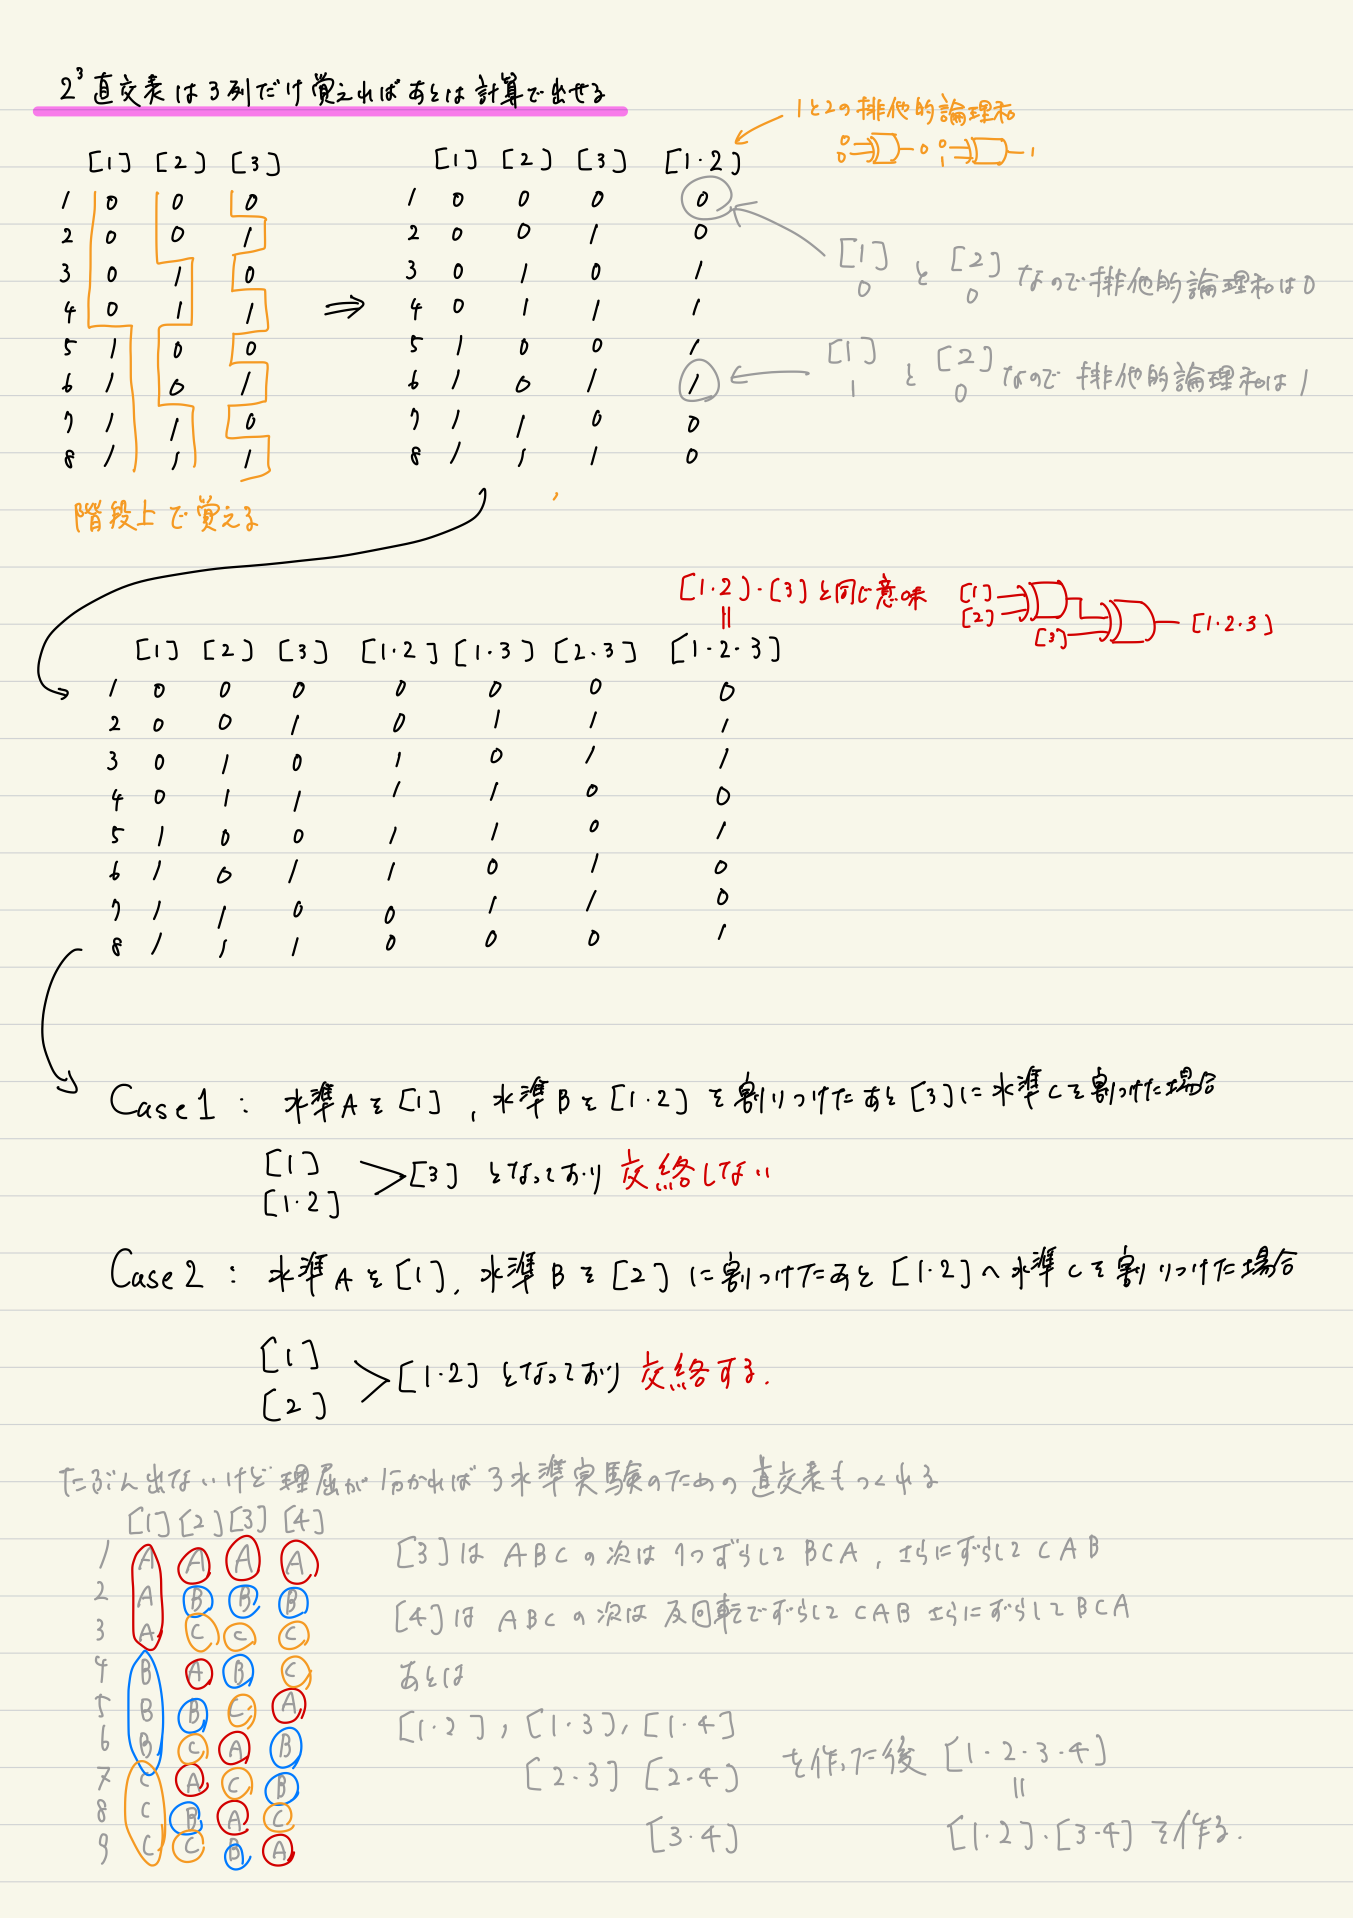 2³直交表は3列だけ覚えればあとは計算で出せる
1と2の排他的論理和
0 0 0 0 1 1
[1] [2] [3]
1 0 0 0
2 0 0 1
3 0 1 0
4 0 1 1
5 1 0 0
6 1 0 1
7 1 1 0
8 1 1 1
階段上で覚える
⇒
[1] [2] [3] [1・2]
1 0 0 0 0
2 0 0 1 0
3 0 1 0 1
4 0 1 1 1
5 1 0 0 1
6 1 0 1 1
7 1 1 0 0
8 1 1 1 0
[1] と [2] なので排他的論理和は0
0 0
[1] と [2] なので排他的論理和は1
1 0
[1・2]・[3]と同じ意味
[1]
[2]
[3]
[1・2・3]
[1] [2] [3] [1・2] [1・3] [2・3] [1・2・3]
1 0 0 0 0 0 0 0
2 0 0 1 0 1 1 1
3 0 1 0 1 0 1 1
4 0 1 1 1 1 0 0
5 1 0 0 1 1 0 1
6 1 0 1 1 0 1 0
7 1 1 0 0 1 1 0
8 1 1 1 0 0 0 1
Case1 : 水準Aを[1], 水準Bを[1・2]を割りつけたあと[3]に水準Cを割つけた場合
[1]
[1・2]
>[3] となっており 交絡しない
Case2 : 水準Aを[1], 水準Bを[2]に割つけたあと[1・2]へ水準Cを割りつけた場合
[1]
[2]
>[1・2] となっており 交絡する.
たぶん出ないけど理屈が分かれば3水準実験のための直交表もつくれる
[1] [2] [3] [4]
1 A A A A
2 A B B B
3 A C C C
4 B A B C
5 B B C A
6 B C A B
7 C A C B
8 C B A C
9 C C B A
[3]は ABCの次は1つずらしてBCA, さらにずらしてCAB
[4]は ABCの次は 反回転でずらしてCABさらにずらしてBCA
あとは
[1・2], [1・3], [1・4]
[2・3] [2・4]
[3・4]
を作った後 [1・2・3・4]
=
[1・2]・[3・4]を作る.